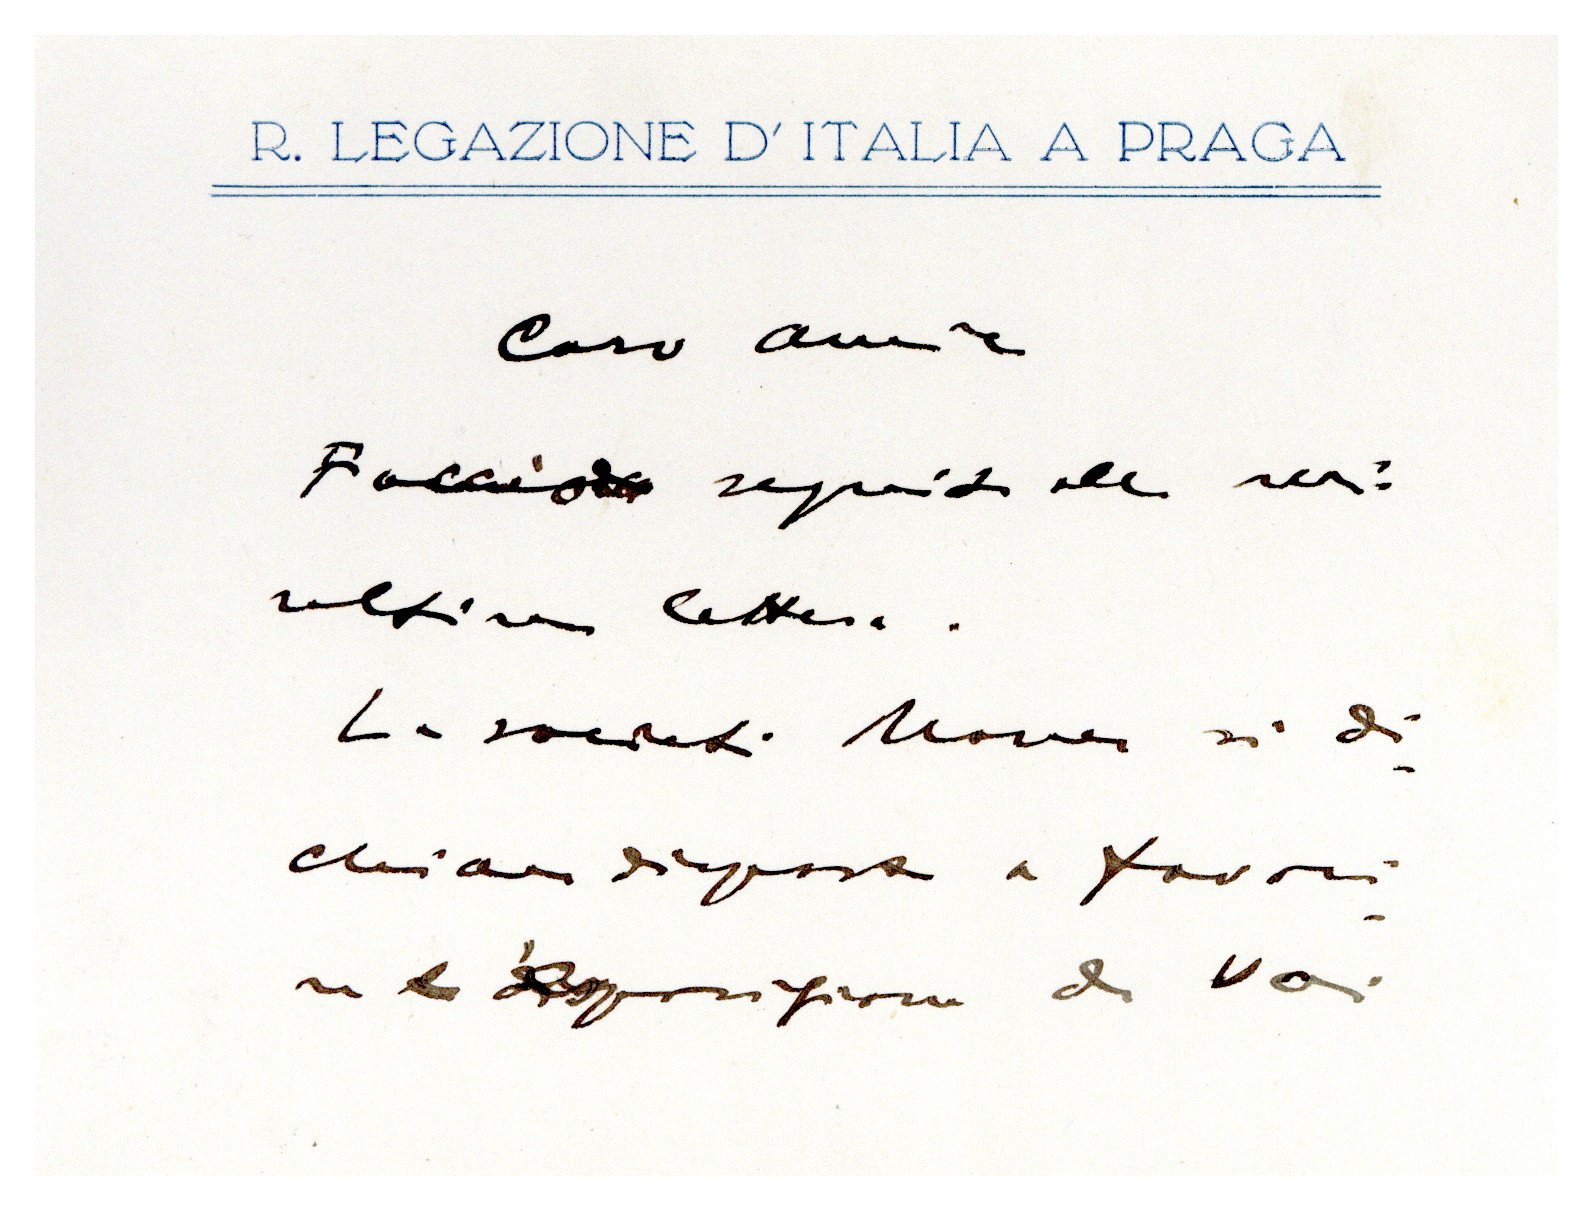 R. LEGAZIONE D'ITALIA A PRAGA
Caro amico
Faccio seguito alla
lettera.
La società Manes si di-
chiara disposta a favori-
re l'esposizione di Voi